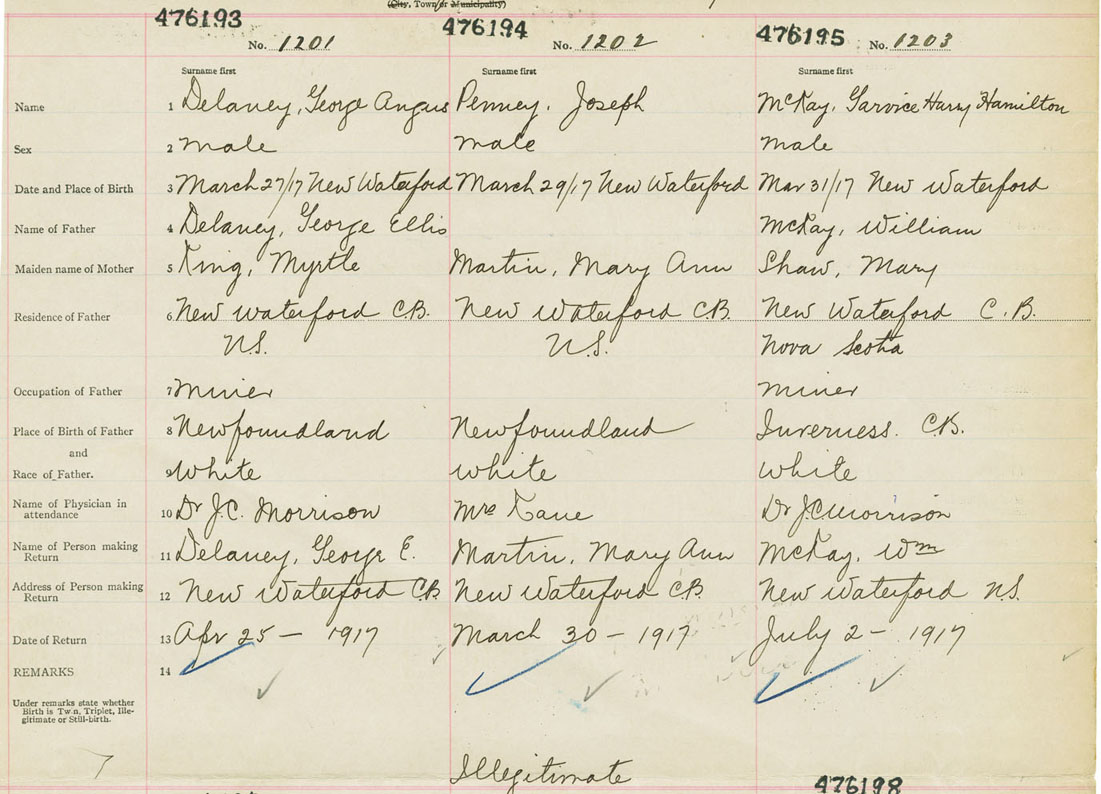 (City, Town or Municipality)
476193 476194 476195
No. 1201 No. 1202 No. 1203
Surname first Surname first Surname first
Name 1 Delaney, George Angus Penney, Joseph McKay, Garvice Harry Hamilton
Sex 2 male male male
Date and Place of Birth 3 March 27/17 New Waterford March 29/17 New Waterford Mar 31/17 New Waterford
Name of Father 4 Delaney, George Ellis McKay, William
Maiden name of Mother 5 King, Myrtle Martin, Mary Ann Shaw, Mary
Residence of Father 6 New Waterford C.B. New Waterford C.B. New Waterford C.B.
N.S. N.S. Nova Scotia
Occupation of Father 7 Miner miner
Place of Birth of Father 8 Newfoundland Newfoundland Inverness. C.B.
and
Race of Father. 9 White White White
Name of Physician in
attendance 10 Dr J.C. Morrison Mrs Kane Dr J C Morrison
Name of Person making
Return 11 Delaney, George E. Martin, Mary Ann McKay, Wm
Address of Person making
Return 12 New Waterford C.B. New Waterford C.B. New Waterford N.S.
Date of Return 13 Apr 25 - 1917 March 30 - 1917 July 2 - 1917
REMARKS 14
Under remarks state whether
Birth is Twin, Triplet, Ille-
gitimate or Still-birth.
Illegitimate
476198